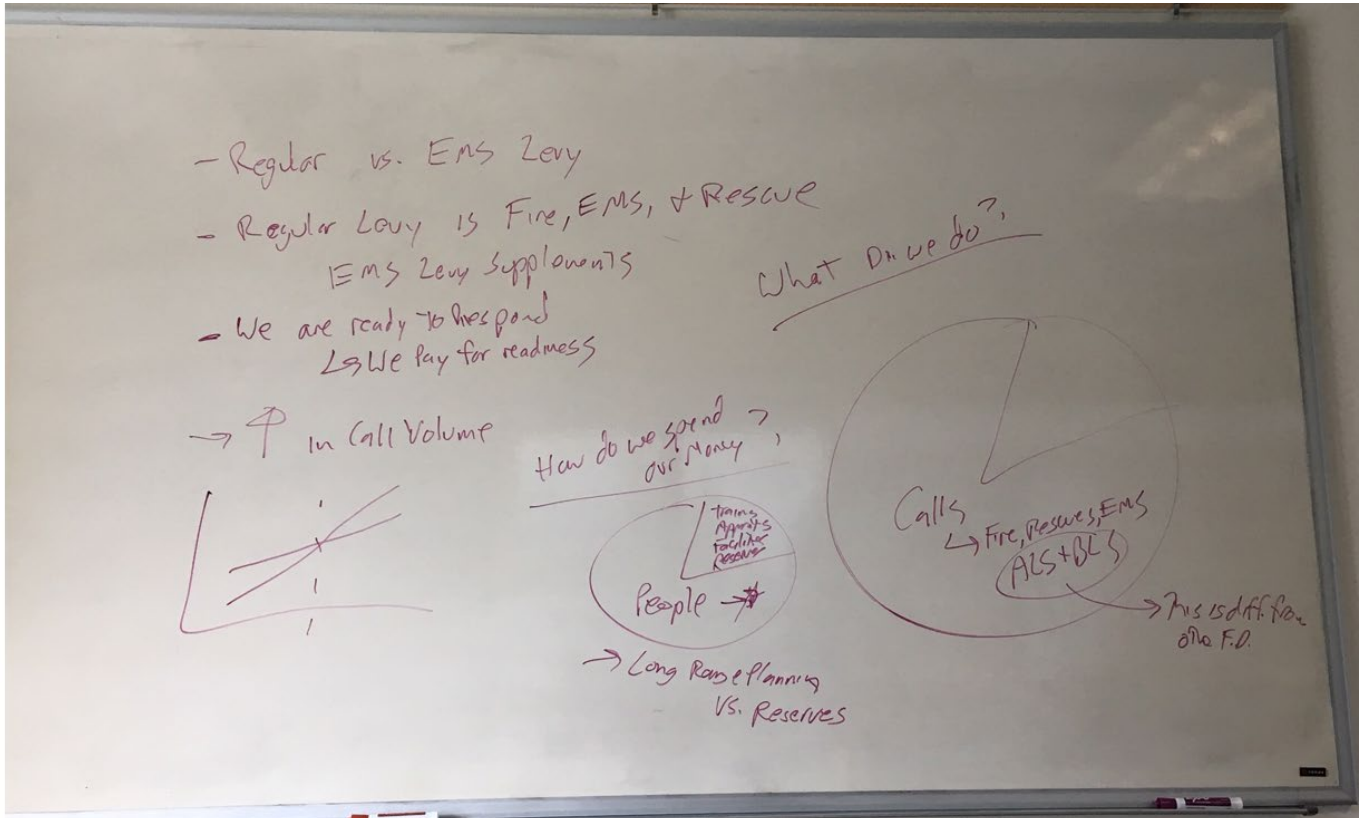 - Regular vs. EMS Levy
- Regular Levy is Fire, EMS, + Rescue
EMS Levy Supplements
- We are ready to Respond
↳ We Pay for readiness
→ ↑ in Call Volume
How do we spend
our Money?
Training
Apparatus
Facilities
Reserves
People →
→ Long Range Planning
vs. Reserves
What Do we do?
Calls
↳ Fire, Rescues, EMS
ALS + BLS
→ This is diff. from
F.D.